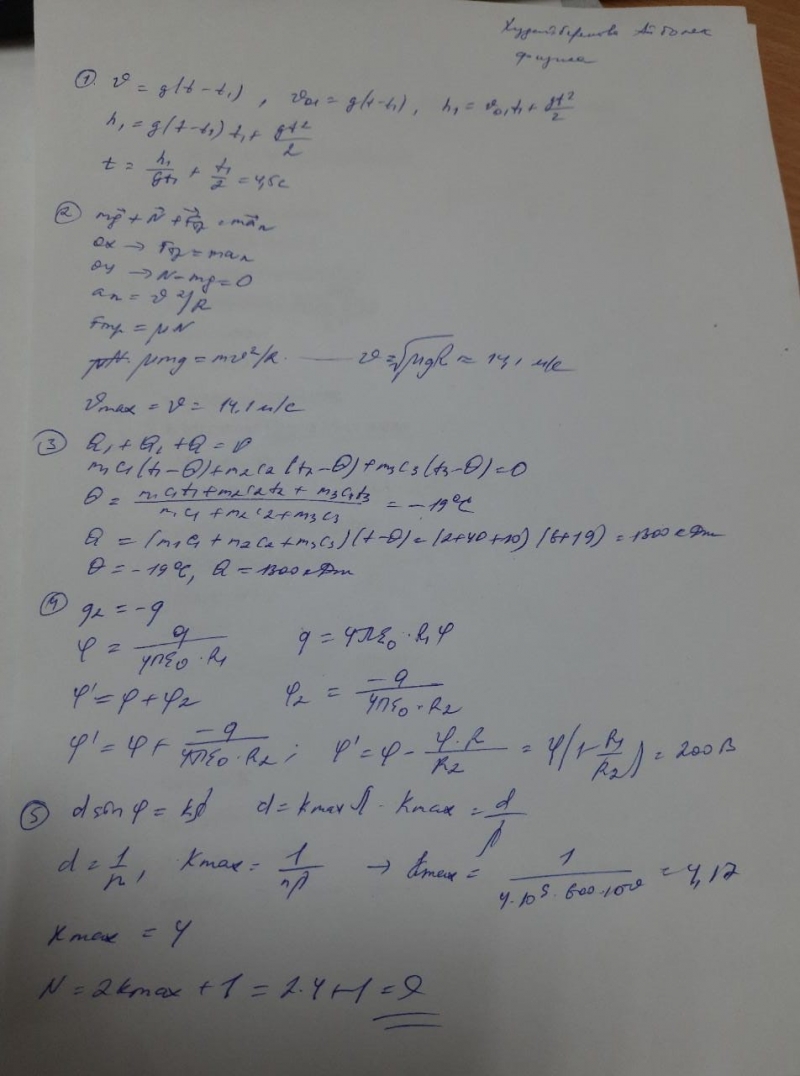 физика
① v = g(t - t₁), v₀₁ = g(t-t₁), h₁ = v₀₁t₁ + gt²/2
h₁ = g(t-t₁) t₁ + gt²/2
t = h₁/gt₁ + t₁/2 = 4,5с
② mg⃗ + N⃗ + F⃗тр = ma⃗n
ox → Fтр = man
oy → N - mg = 0
an = v²/R
Fтр = μN
μmg = mv²/R. — v = √μgR = 14,1 м/с
vmax = v = 14,1 м/с
③ Q₁ + Q₂ + Q = 0
m₁c₁(t₁-θ) + m₂c₂(t₂-θ) + m₃c₃(t₃-θ) = 0
θ = m₁c₁t₁ + m₂c₂t₂ + m₃c₃t₃ / m₁c₁ + m₂c₂ + m₃c₃ = -19°C
Q = (m₁c₁ + m₂c₂ + m₃c₃)(t-θ) = (2+40+10)(6+19) = 1300кДж
θ = -19°C, Q = 1300кДж
④ q₂ = -q
φ = q/4πε₀·R₁ q = 4πε₀·R₁φ
φ' = φ + φ₂ φ₂ = -q/4πε₀·R₂
φ' = φ + -q/4πε₀·R₂ ; φ' = φ - φ·R/R₂ = φ(1-R₁/R₂) = 200В
⑤ d sin φ = kλ d = kmaxλ · kmax = d/λ
d = 1/n, kmax = 1/nλ → kmax = 1/4·10⁵·600·10⁻⁹ = 4,17
kmax = 4
N = 2kmax + 1 = 2·4+1 = 9